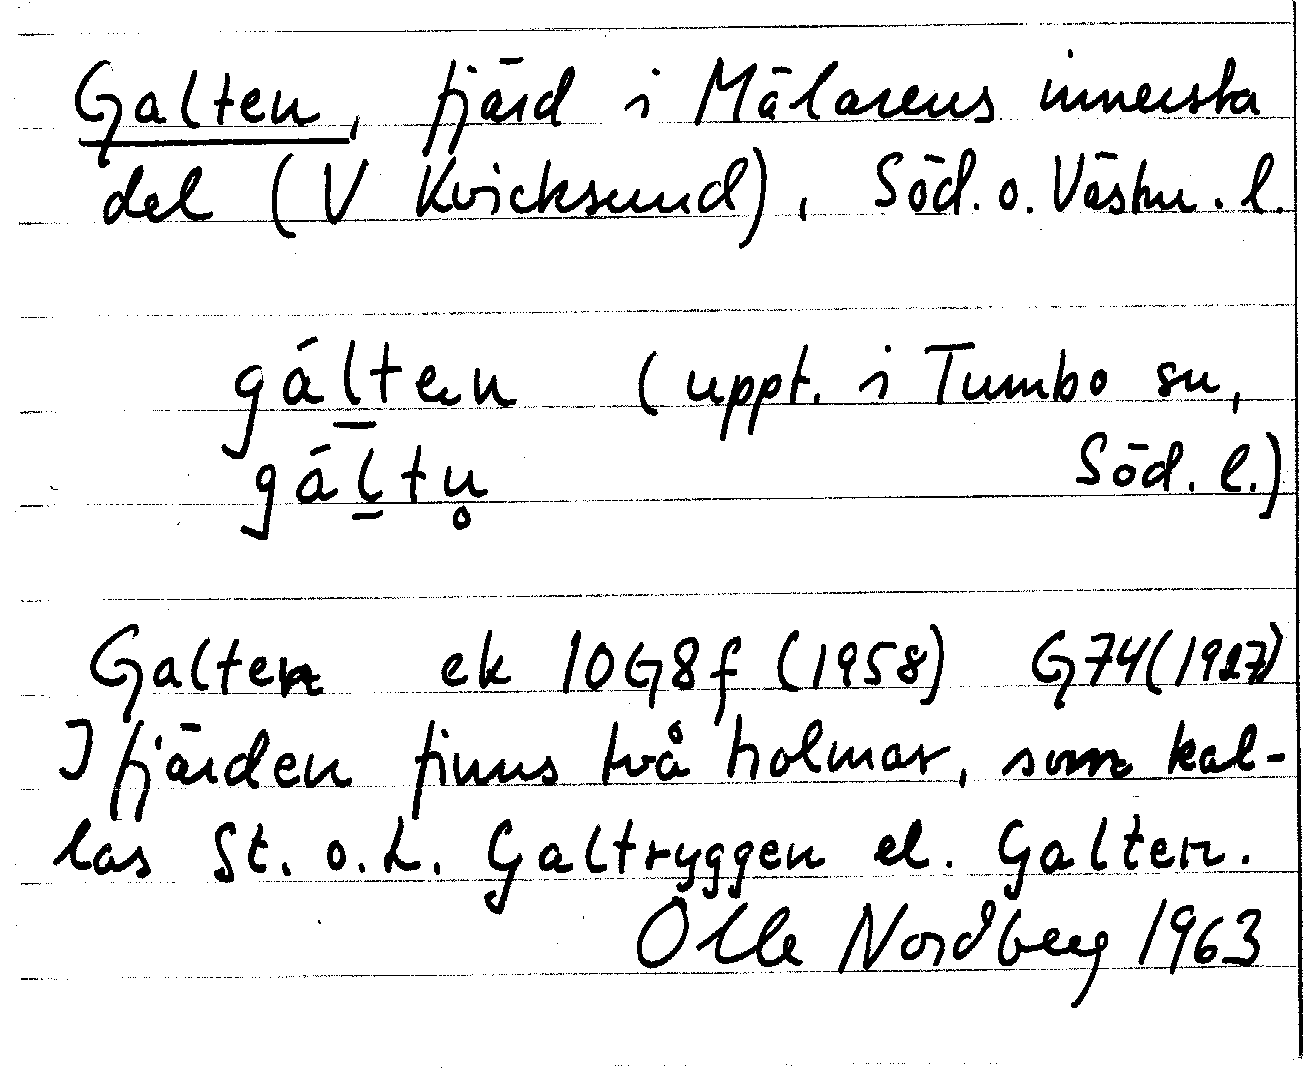 Galten, fjärd i Mälarens innersta
del (V Kvicksund), Söd. o. Västm. l.
gáḻten (uppt. i Tumbo sn,
gáḻtn̥ Söd. l.)
Galten ek 10G8f (1958) G74 (1927)
I fjärden finns två holmar, som kal-
las St. o. L. Galtryggen el. Galten.
Olle Nordberg 1963